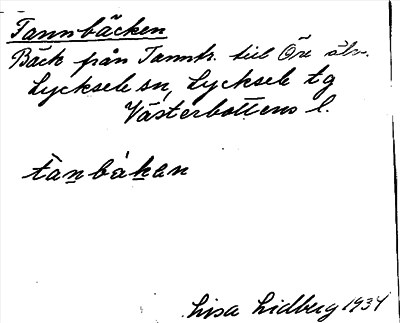 Tannbäcken
Bäck från Tanntr. till Öre älv.
Lycksele sn, Lycksele tg
Västerbottens l.
tanbákan
Lisa Lidberg 1934